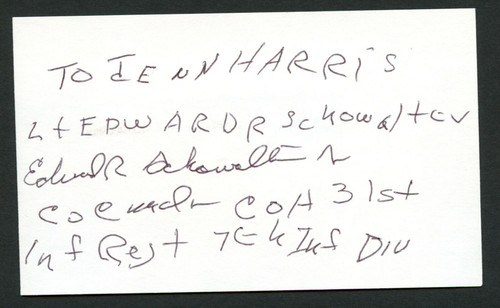 TO JENN HARRIS
Lt EDWARD R Schowalter
Edward R Schowalter Jr
CO Cmdr CO A 31st
Inf Regt 7th Inf Div